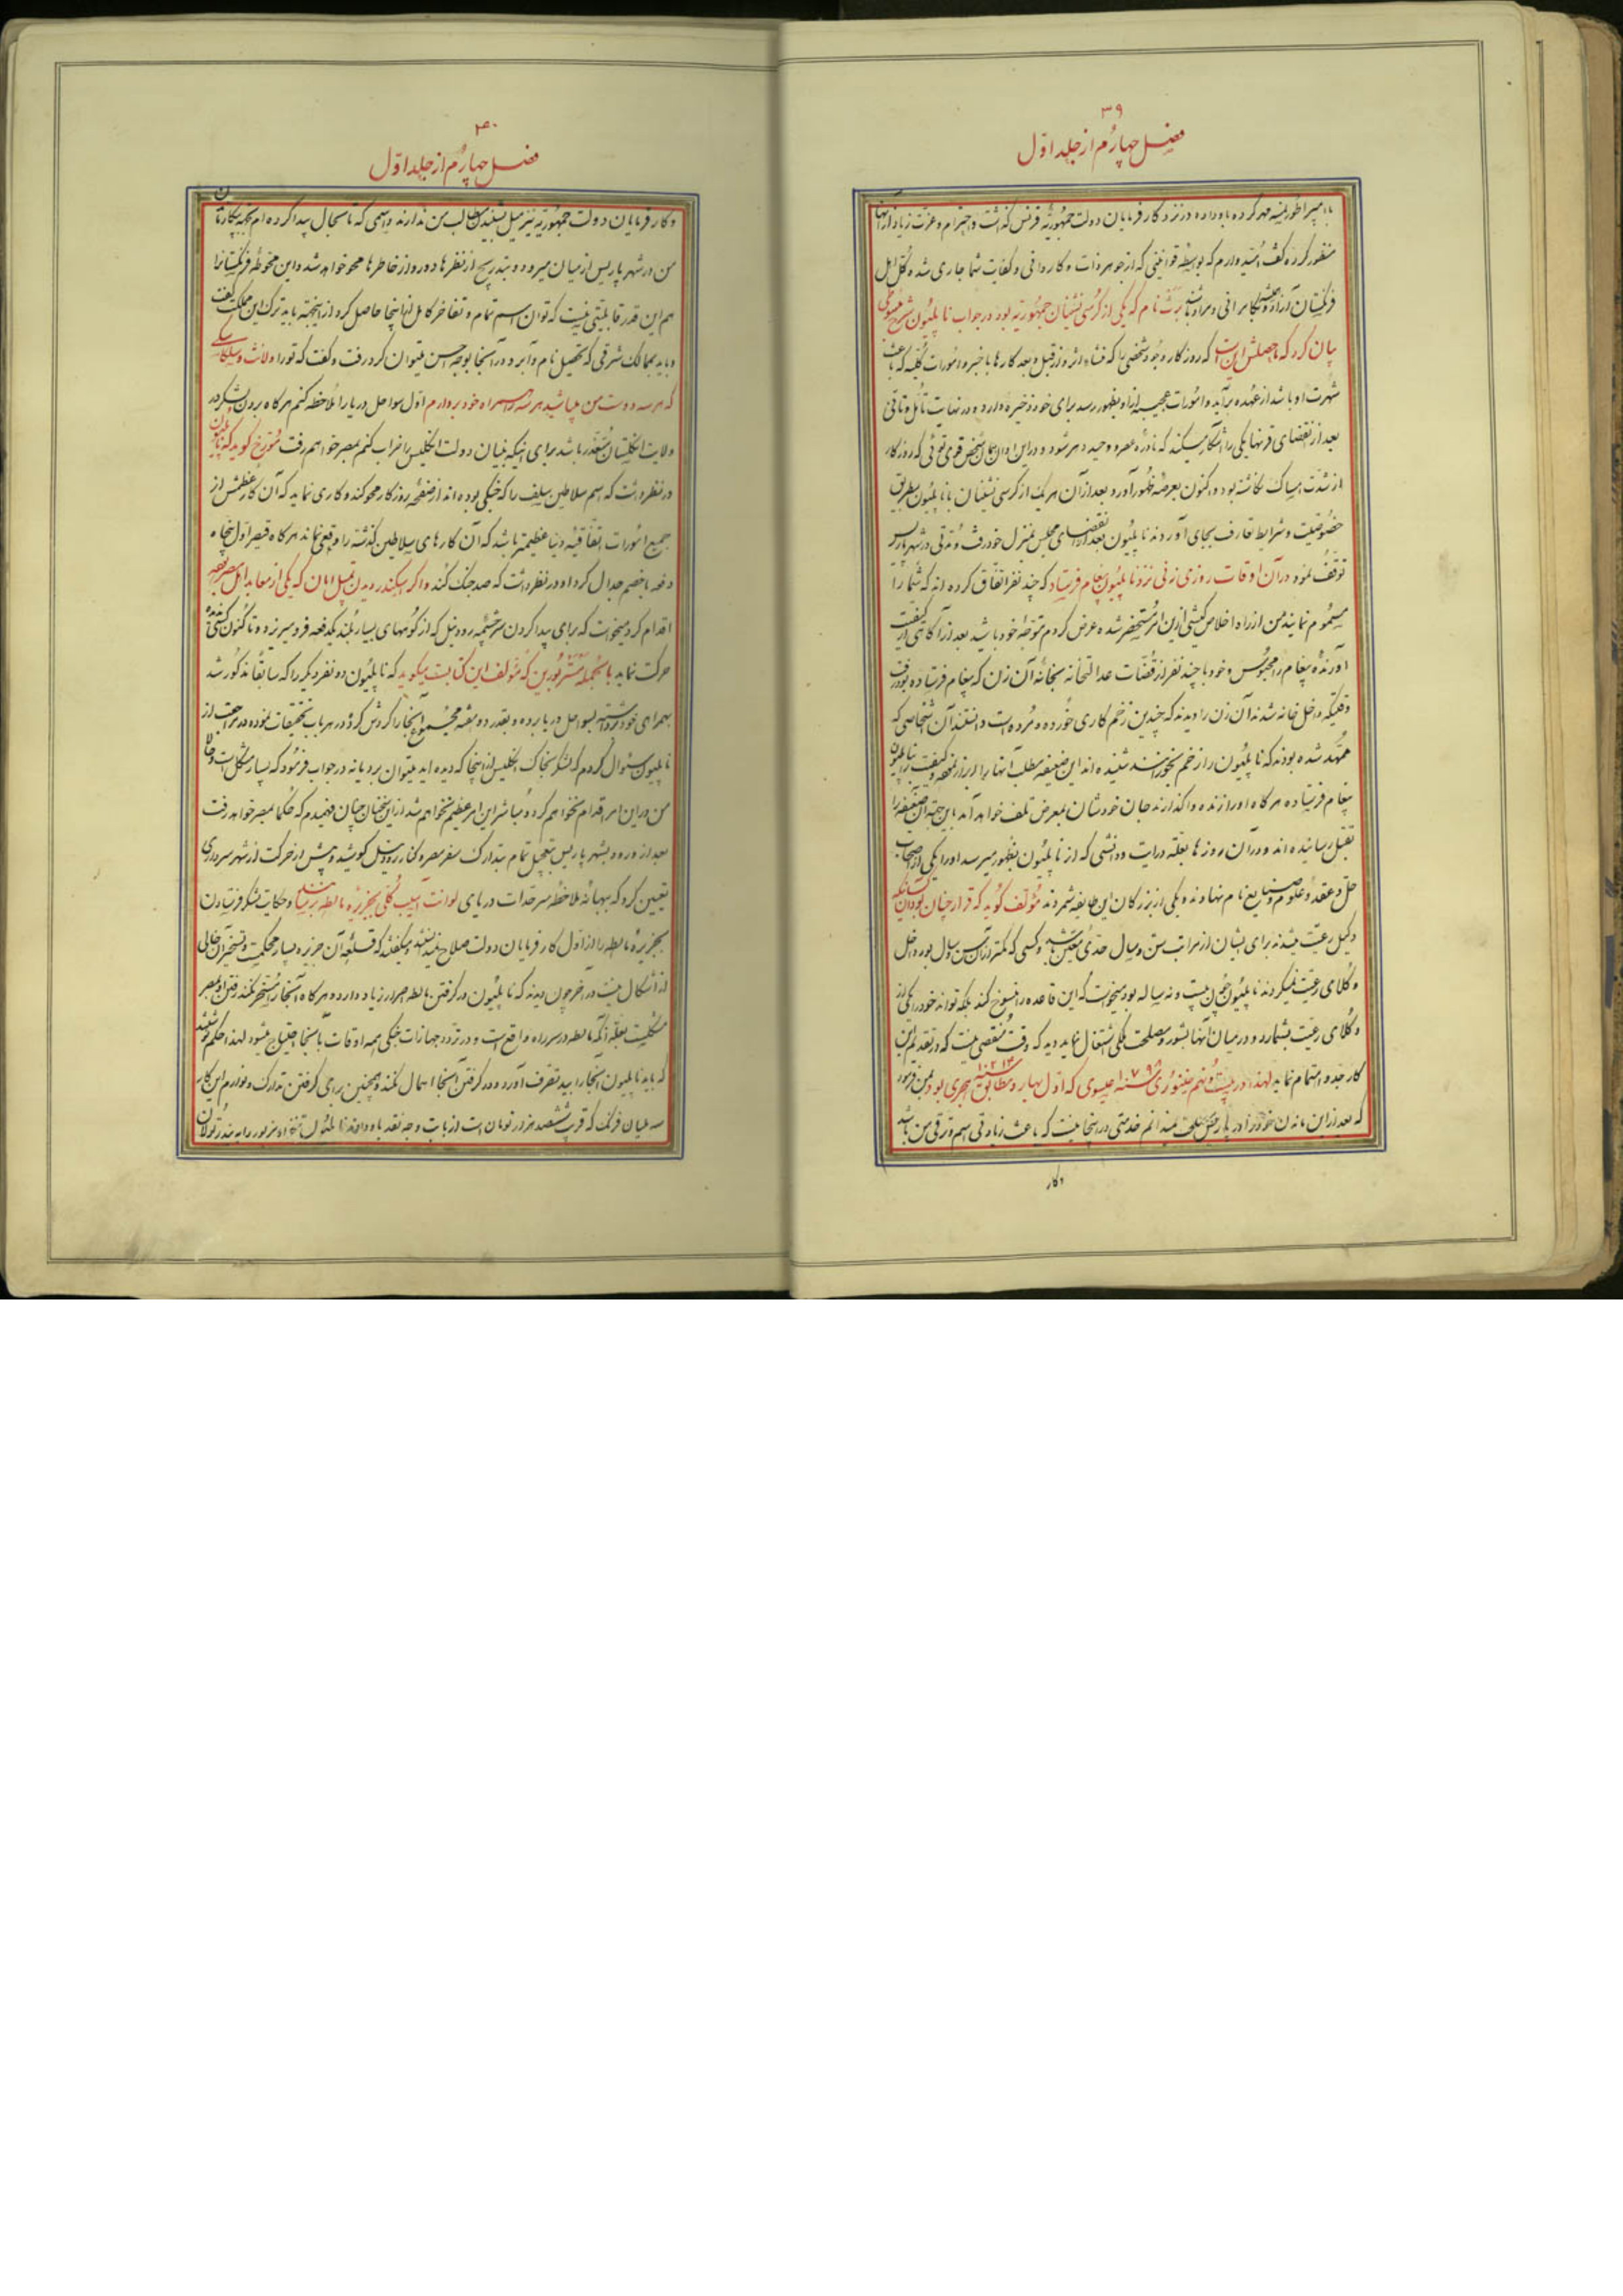 ۳۹
فصل چهارم از جلد اول
با امپراطور نمسه مهر کرده باو داده در نزد کارفرمایان دولت جمهوریه فرنس گذاشت و احترام و عزت زیاد از آنها
منظور کرده گفت امیدوارم که بواسطه قوانینی که از جوهر ذات و کاردانی و کفایت شما جاری شده کل اهل
فرنگستان آزاد و بکامرانی و مراد نام که یکی از کرسی نشینان جمهوریه بود در جواب ناپلیون شرح مبسوطی
بیان کرد که ماحصلش این است که روزگار وجود شخصی را که منشاء اثر و از قبل و بعد کارها باخبر و امورات کلیه که باعث
شهرت او باشد از عهده برآید و امورات عجیبه از او بظهور رسد برای خود ذخیره دارد و در نهایت تأمل و تأنی
بعد از انقضای قرنها یکی را آشکار میکند که نادره عصر و وحید دهر شود و در این اوان همان شخص قوی توئی که روزگار
از شدت امساک نگاشته بود و اکنون بعرصه ظهور آورد بعد از آن هر یک از کرسی نشینان با ناپلیون بطریق
خصوصیت و شرایط تعارف بجای آوردند ناپلیون بعد از انقضای مجلس بمنزل خود رفت و مدتی در شهر پاریس
توقف نمود در آن اوقات روزی زنی نزد ناپلیون پیغام فرستاد که چند نفر اتفاق کرده اند که شما را
مسموم نمایند من از راه اخلاص کیشی از این امر مستحضر شده عرض کردم متوجه خود باشید بعد از آگاهی از کیفیت
آورنده پیغام را محبوس و خود با چند نفر از قضات عدالتخانه بخانه آن زن که پیغام فرستاده بود رفت
وقتیکه داخل خانه شدند آن زن را دیدند که چندین زخم کاری خورده و مرده است دانستند آن اشخاصی که
متعهد شده بودند که ناپلیون را زخم بخورانند شنیده اند این ضعیفه مطلب آنها را ابراز نموده و کیفیت را بناپلیون
پیغام فرستاده هرگاه او را زنده واگذارند جان خودشان بمعرض تلف خواهد آمد باین جهة آن ضعیفه را
بقتل رسانیده اند و در آن روزها بعلت درایت و دانشی که از ناپلیون بظهور میرسد او را یکی از اصحاب
حل و عقد و علوم و صنایع نام نهادند و یکی از بزرگان این طایفه شمردند مؤلف گوید که قرار چنان بود
وکیل رعیت میشدند برای ایشان از مراتب سن و سال حدی معین باشد و کسی که کمتر از آن سن و سال بود داخل
وکلای رعیت نمیکردند ناپلیون چون بیست و نه ساله بود میخواست که این قاعده را منسوخ کند بلکه تواند خود را یکی از
وکلای رعیت بشمارد و در میان آنها بشور و مصلحت ملکی اشتغال نماید دید که وقت مقتضی نیست که در تقدیم این
کار جد و اهتمام نماید لهذا در بیست و نهم جنوری سنه ۱۷۹۸ عیسوی که اول بهار و مطابق سنه ۱۲۱۳ هجری بود بمن فرمود
که بعد از این ماندن خود را در پاریس مصلحت نمیدانم خدمتی در اینجا نیست که باعث زیادتی اسم و ترقی من باشد
وکار
۴۰
فصل چهارم از جلد اول
و کارفرمایان دولت جمهوریه نیز میل بشنیدن مطالب من ندارند و اسمی که تا بحال پیدا کرده ام
من در شهر پاریس از میان میرود و بتدریج از نظرها دور و از خاطرها محو خواهد شد و این محوطه فرنگستان را
هم این قدر قابلیتی نیست که توان اسم تمام و تفاخر کامل از اینجا حاصل کرد از اینجهة باید ترک این مملکت گفت
و باید بممالک شرقی که تحصیل نام و آبرو در آنجا بوجه احسن میتوان کرد رفت و گفت که تو را و لانت و سلکاسکی
که هر سه دوست من میباشید هر سه را همراه خود برده ارم اول سواحل دریا را ملاحظه کنم هرگاه بردن لشکر در
ولایت انگلستان متعذر باشد برای اینکه بنیان دولت انگلیس را خراب کنم بمصر خواهم رفت مورخ گوید که ناپلیون
در نظر داشت که اسم سلاطین سلف را که جنگی بوده اند از صفحه روزگار محو کند و کاری نماید که آن کار عظمش از
جمیع امورات اتفاقیه دنیا عظیمتر باشد که آن کارهای سلاطین گذشته را وقعی نماند هرگاه قیصر اول پنجاه
دفعه با خصم جدال کرد او در نظر داشت که صد جنگ کند و اگر اسکندر بدیدن تمپل امان که یکی از معابد اهل مصر
اقدام کرد میخواست که برای پیدا کردن سرچشمه رود نیل که از کوههای بسیار بلند یکدفعه فرو میریزد و تا کنون کسی
حرکت نماید بالجمله مستر بورین که مؤلف این کتابست میگوید که ناپلیون دو نفر دیگر را که سابقاً مذکور شد
بهمراهی خود برداشته بسواحل دریا برده و بقدر دو هفته مجموع آنجا را گردش کرد و در هر باب تحقیقات نموده در مراجعت از
ناپلیون سئوال کردم که لشکر بخاک انگلیس از اینجا که دیده اید میتوان برد یا نه در جواب فرمود که بسیار مشکل است
من در این امر اقدام نخواهم کرد و مباشر این امر عظیم نخواهم شد از این سخنان چنان فهمیدم که حکما بمصر خواهد رفت
بعد از ورود بشهر پاریس بتعجیل تمام بتدارک سفر مصر و کنار رود نیل کوشید و پیش از حرکت از شهر سرداری
تعیین کرد که ببهانه ملاحظه سرحدات دریای لوانت آسیب کلی بجزیره مالطه برساند و حکایت لشکر فرستادن
بجزیره مالطه را از اول کارفرمایان دولت صلاح نمیدانستند و میگفتند که قلعه آن جزیره بسیار محکم است و تسخیر آن خالی
از اشکال نیست در آخر چون دیدند که ناپلیون در گرفتن مالطه اصرار زیاد دارد و هرگاه آنجا را مسخر نکند رفتن او بمصر
مشکلست بعلت آنکه مالطه در سر راه واقع است و در تردد جهازات جنگی همه اوقات بآنجا احتیاج میشود لهذا حکم نوشتند
که باید ناپلیون آنجا را بید تصرف آورد و در گرفتن آنجا اهمال نکند و همچنین برای گرفتن تدارک و لوازم این کار
سه ملیان فرنک که قریب ششصد هزار تومان است از بابت وجه نقد باو دادند ناپلیون تنخواه مزبور را به بندر تولان